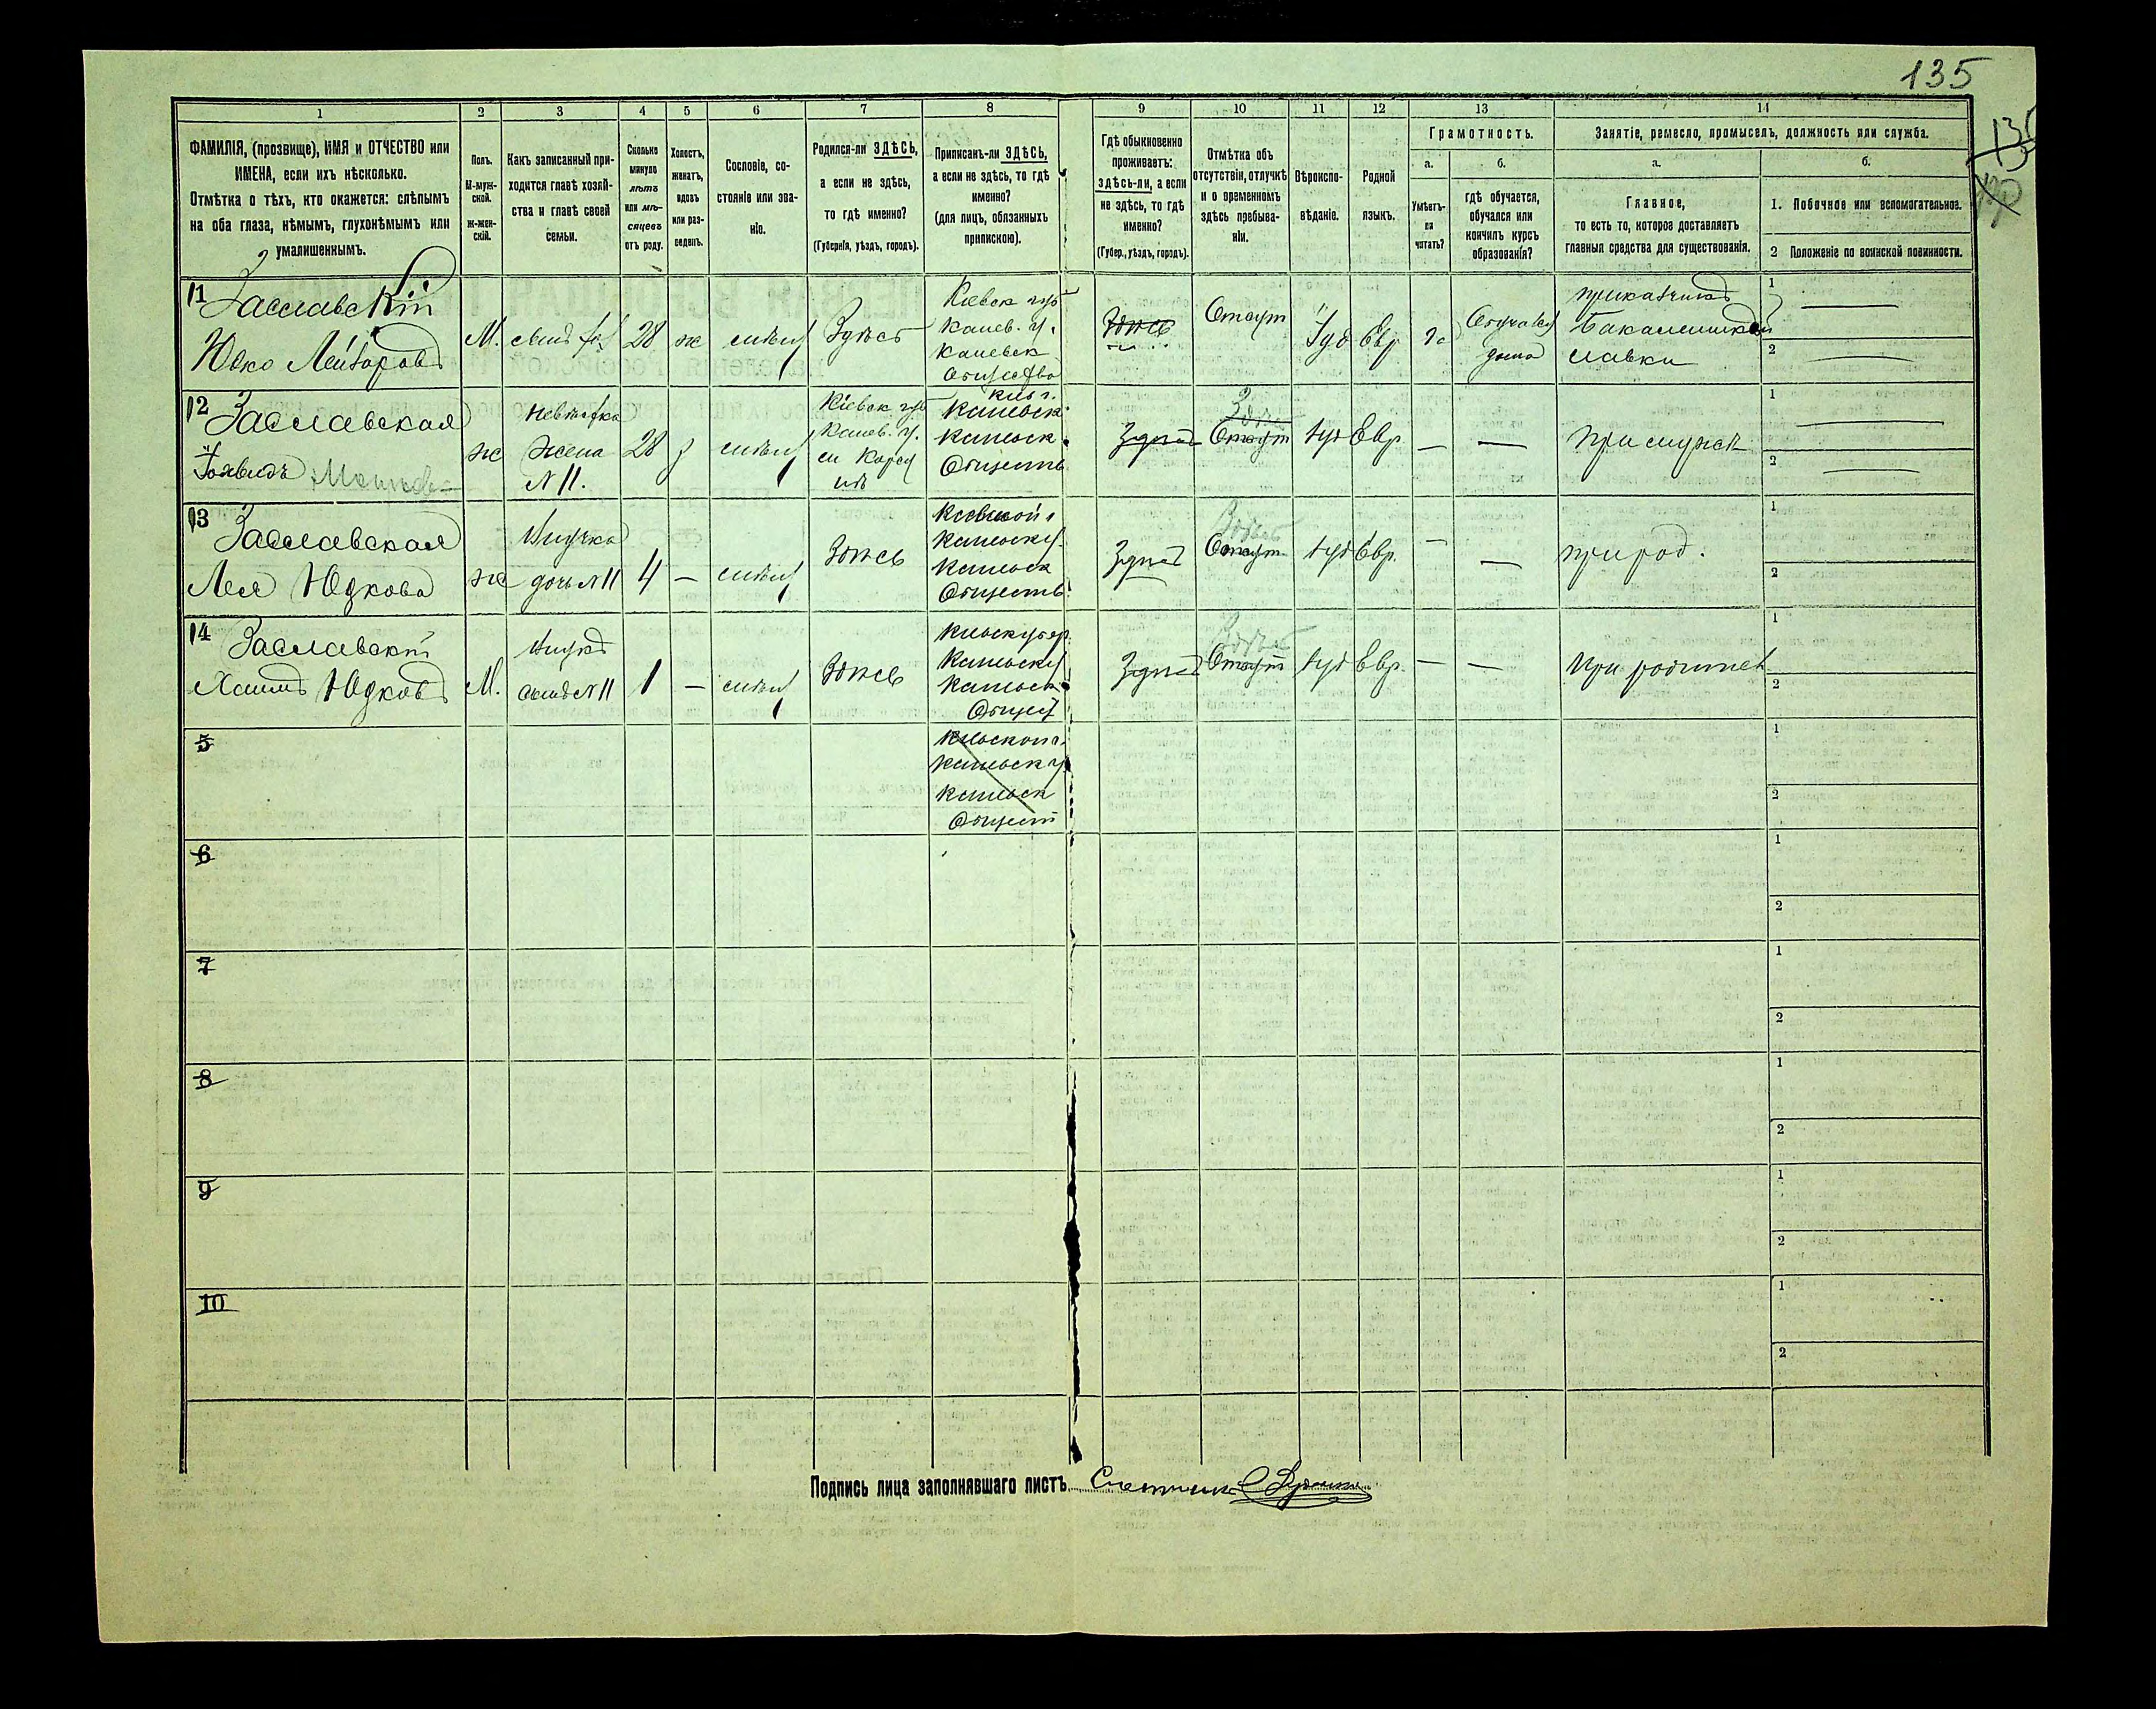 135
135
1
2
3
4
5
6
7
8
9
10
11
12
13
14
ФАМИЛІЯ, (прозвище), ИМЯ и ОТЧЕСТВО или
ИМЕНА, если ихъ нѣсколько.
Отмѣтка о тѣхъ, кто окажется: слѣпымъ
на оба глаза, нѣмымъ, глухонѣмымъ или
умалишеннымъ.
Полъ.
М-муж-
ской.
ж-жен-
скій.
Какъ записанный при-
ходится главѣ хозяй-
ства и главѣ своей
семьи.
Сколько
минуло
лѣтъ
или мѣ-
сяцевъ
отъ роду.
Холостъ,
женатъ,
вдовъ
или раз-
веденъ.
Сословіе, со-
стояніе или зва-
ніе.
Родился-ли ЗДѢСЬ,
а если не здѣсь,
то гдѣ именно?
(Губернія, уѣздъ, городъ).
Приписанъ-ли ЗДѢСЬ,
а если не здѣсь, то гдѣ
именно?
(для лицъ, обязанныхъ
припискою).
Гдѣ обыкновенно
проживаетъ:
здѣсь-ли, а если
не здѣсь, то гдѣ
именно?
(Губер., уѣздъ, городъ).
Отмѣтка объ
отсутствіи, отлучкѣ
и о временномъ
здѣсь пребыва-
ніи.
Вѣроиспо-
вѣданіе.
Родной
языкъ.
Грамотность.
а.
б.
Умѣетъ-
ли
читать?
гдѣ обучается,
обучался или
кончилъ курсъ
образованія?
Занятіе, ремесло, промыселъ, должность или служба.
а.
б.
Главное,
то есть то, которое доставляетъ
главныя средства для существованія.
1. Побочное или вспомогательное.
2 Положеніе по воинской повинности.
11
Заславскій
Юдко Лейзоровъ
М.
28
ж
Здѣсь
Кіевск губ
Канев. у.
Каневск
Общество
Здѣсь
Отсут
Іуд
Евр
Обучался
дома
приказчикъ
Бакалейной
лавки
1
2
12
Заславская
ж
невѣстка
жена
N 11.
28
з
Кіевск губ
Канев. у.
Каневск
Каневск
Обществ
Здѣсь
Здѣсь
Отсут
Іуд
Евр.
—
—
при мужѣ
1
2
13
Заславская
Лея Юдкова
ж
Внучка
дочь N 11
4
—
Здѣсь
Каневск у
Каневск
Обществ.
Здѣсь
Здѣсь
Отсут
Іуд
Евр.
—
—
при род.
1
2
14
Заславскій
Хаимъ Юдковъ
М.
Внукъ
сынъ N 11
1
—
Здѣсь
Каневск у
Каневск
Общест
Здѣсь
Здѣсь
Отсут
Іуд
Евр.
—
—
При родителях
1
2
5
Каневск у
Каневск
Общест
1
2
6
1
2
7
1
2
8
1
2
9
1
2
10
1
2
Подпись лица заполнявшаго листъ Счетчик